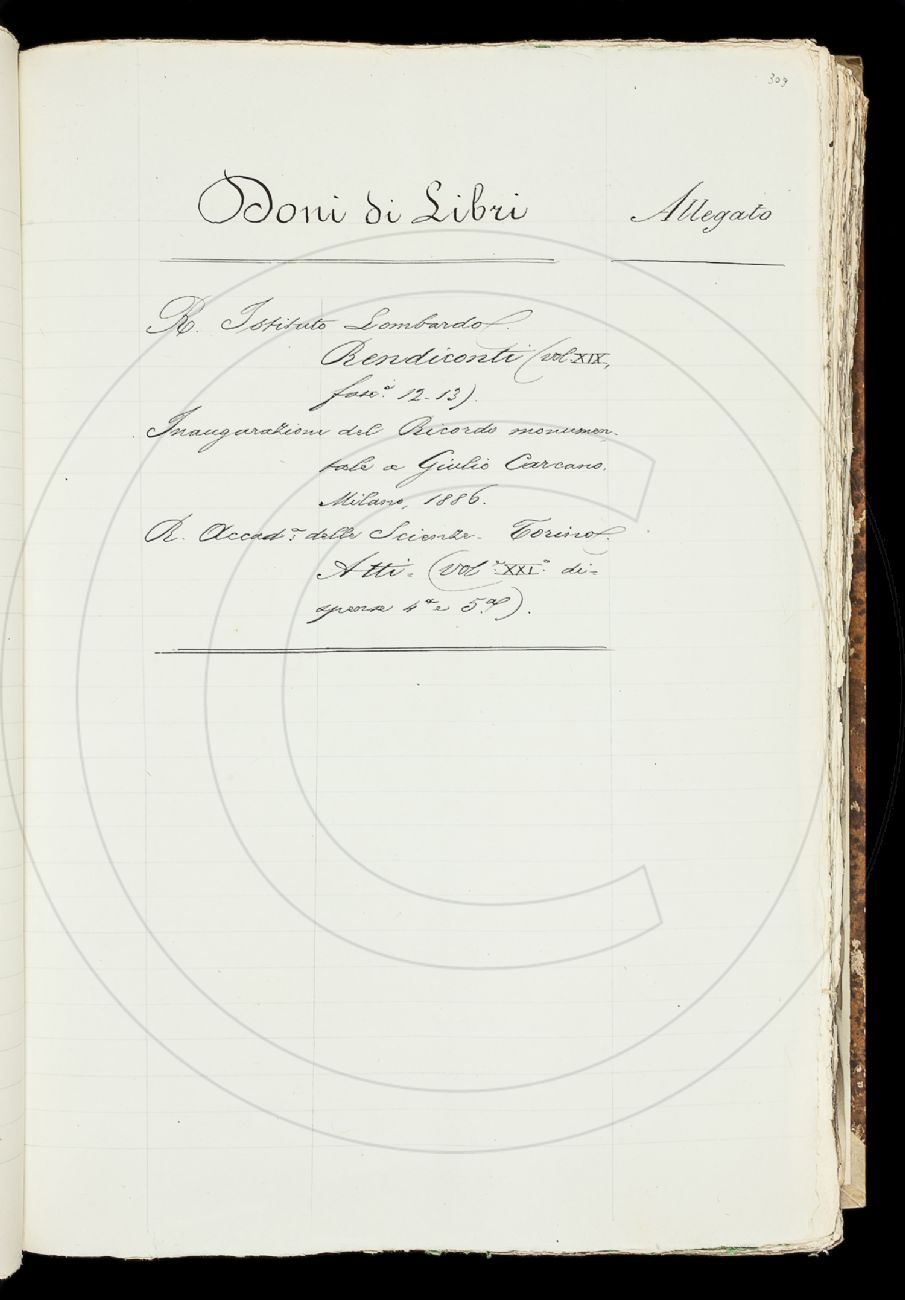 309
Doni di Libri Allegato
R. Istituto Lombardo.
Rendiconti (vol. XIX,
fasc.º 12-13).
Inaugurazione del Ricordo monumen-
tale a Giulio Carcano.
Milano, 1886.
R. Accad.ª delle Scienze. Torino.
Atti. (Vol.º XXI.º di=
spense 4ª e 5ª).